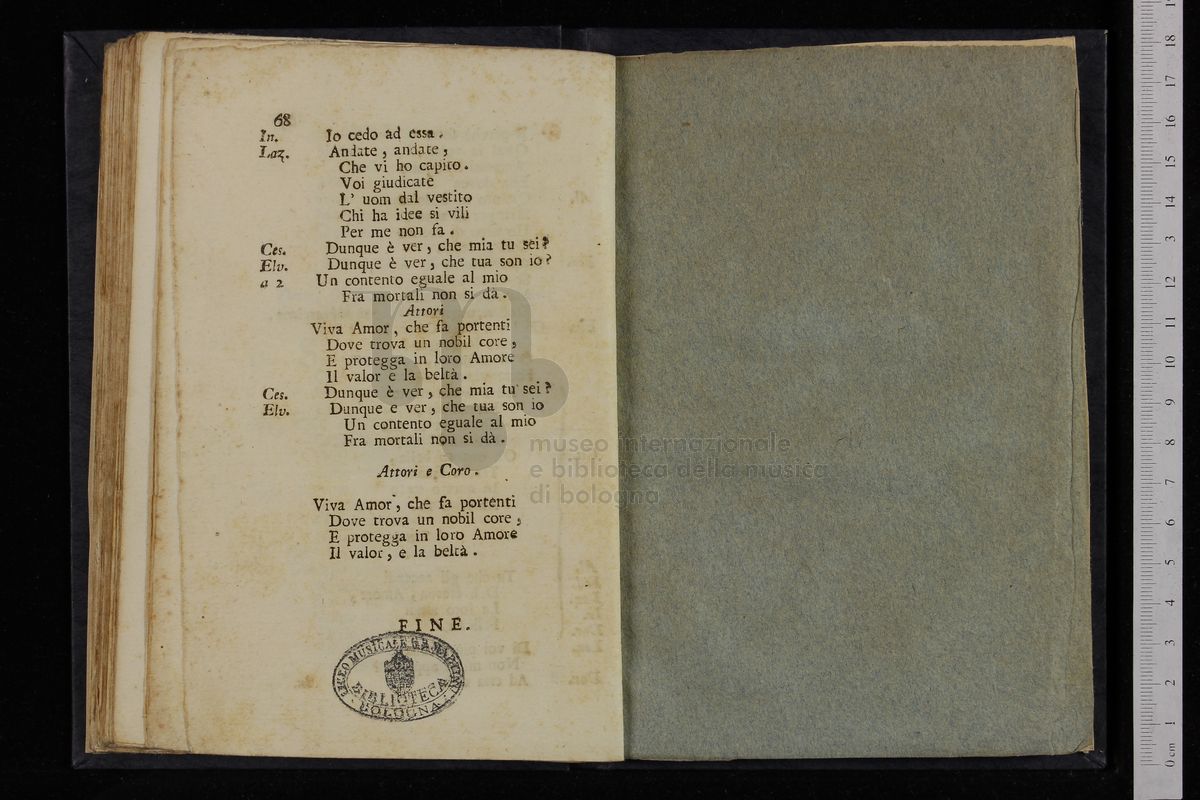 68
In. Io cedo ad essa.
Laz. Andate, andate,
Che vi ho capito.
Voi giudicate
L' uom dal vestito
Chi ha idee si vili
Per me non fa.
Ces. Dunque è ver, che mia tu sei?
Elv. Dunque è ver, che tua son io?
a 2 Un contento eguale al mio
Fra mortali non si dà.
Attori
Viva Amor, che fa portenti
Dove trova un nobil core,
E protegga in loro Amore
Il valor e la beltà.
Ces. Dunque è ver, che mia tu sei?
Elv. Dunque e ver, che tua son io
Un contento eguale al mio
Fra mortali non si dà.
Attori e Coro.
Viva Amor, che fa portenti
Dove trova un nobil core,
E protegga in loro Amore
Il valor, e la beltà.
FINE.
LICEO MUSICALE G.B. MARTINI
BIBLIOTECA
BOLOGNA
museo internazionale
e biblioteca della musica
di bologna
0 cm 1 2 3 4 5 6 7 8 9 10 11 12 3 14 15 16 17 18